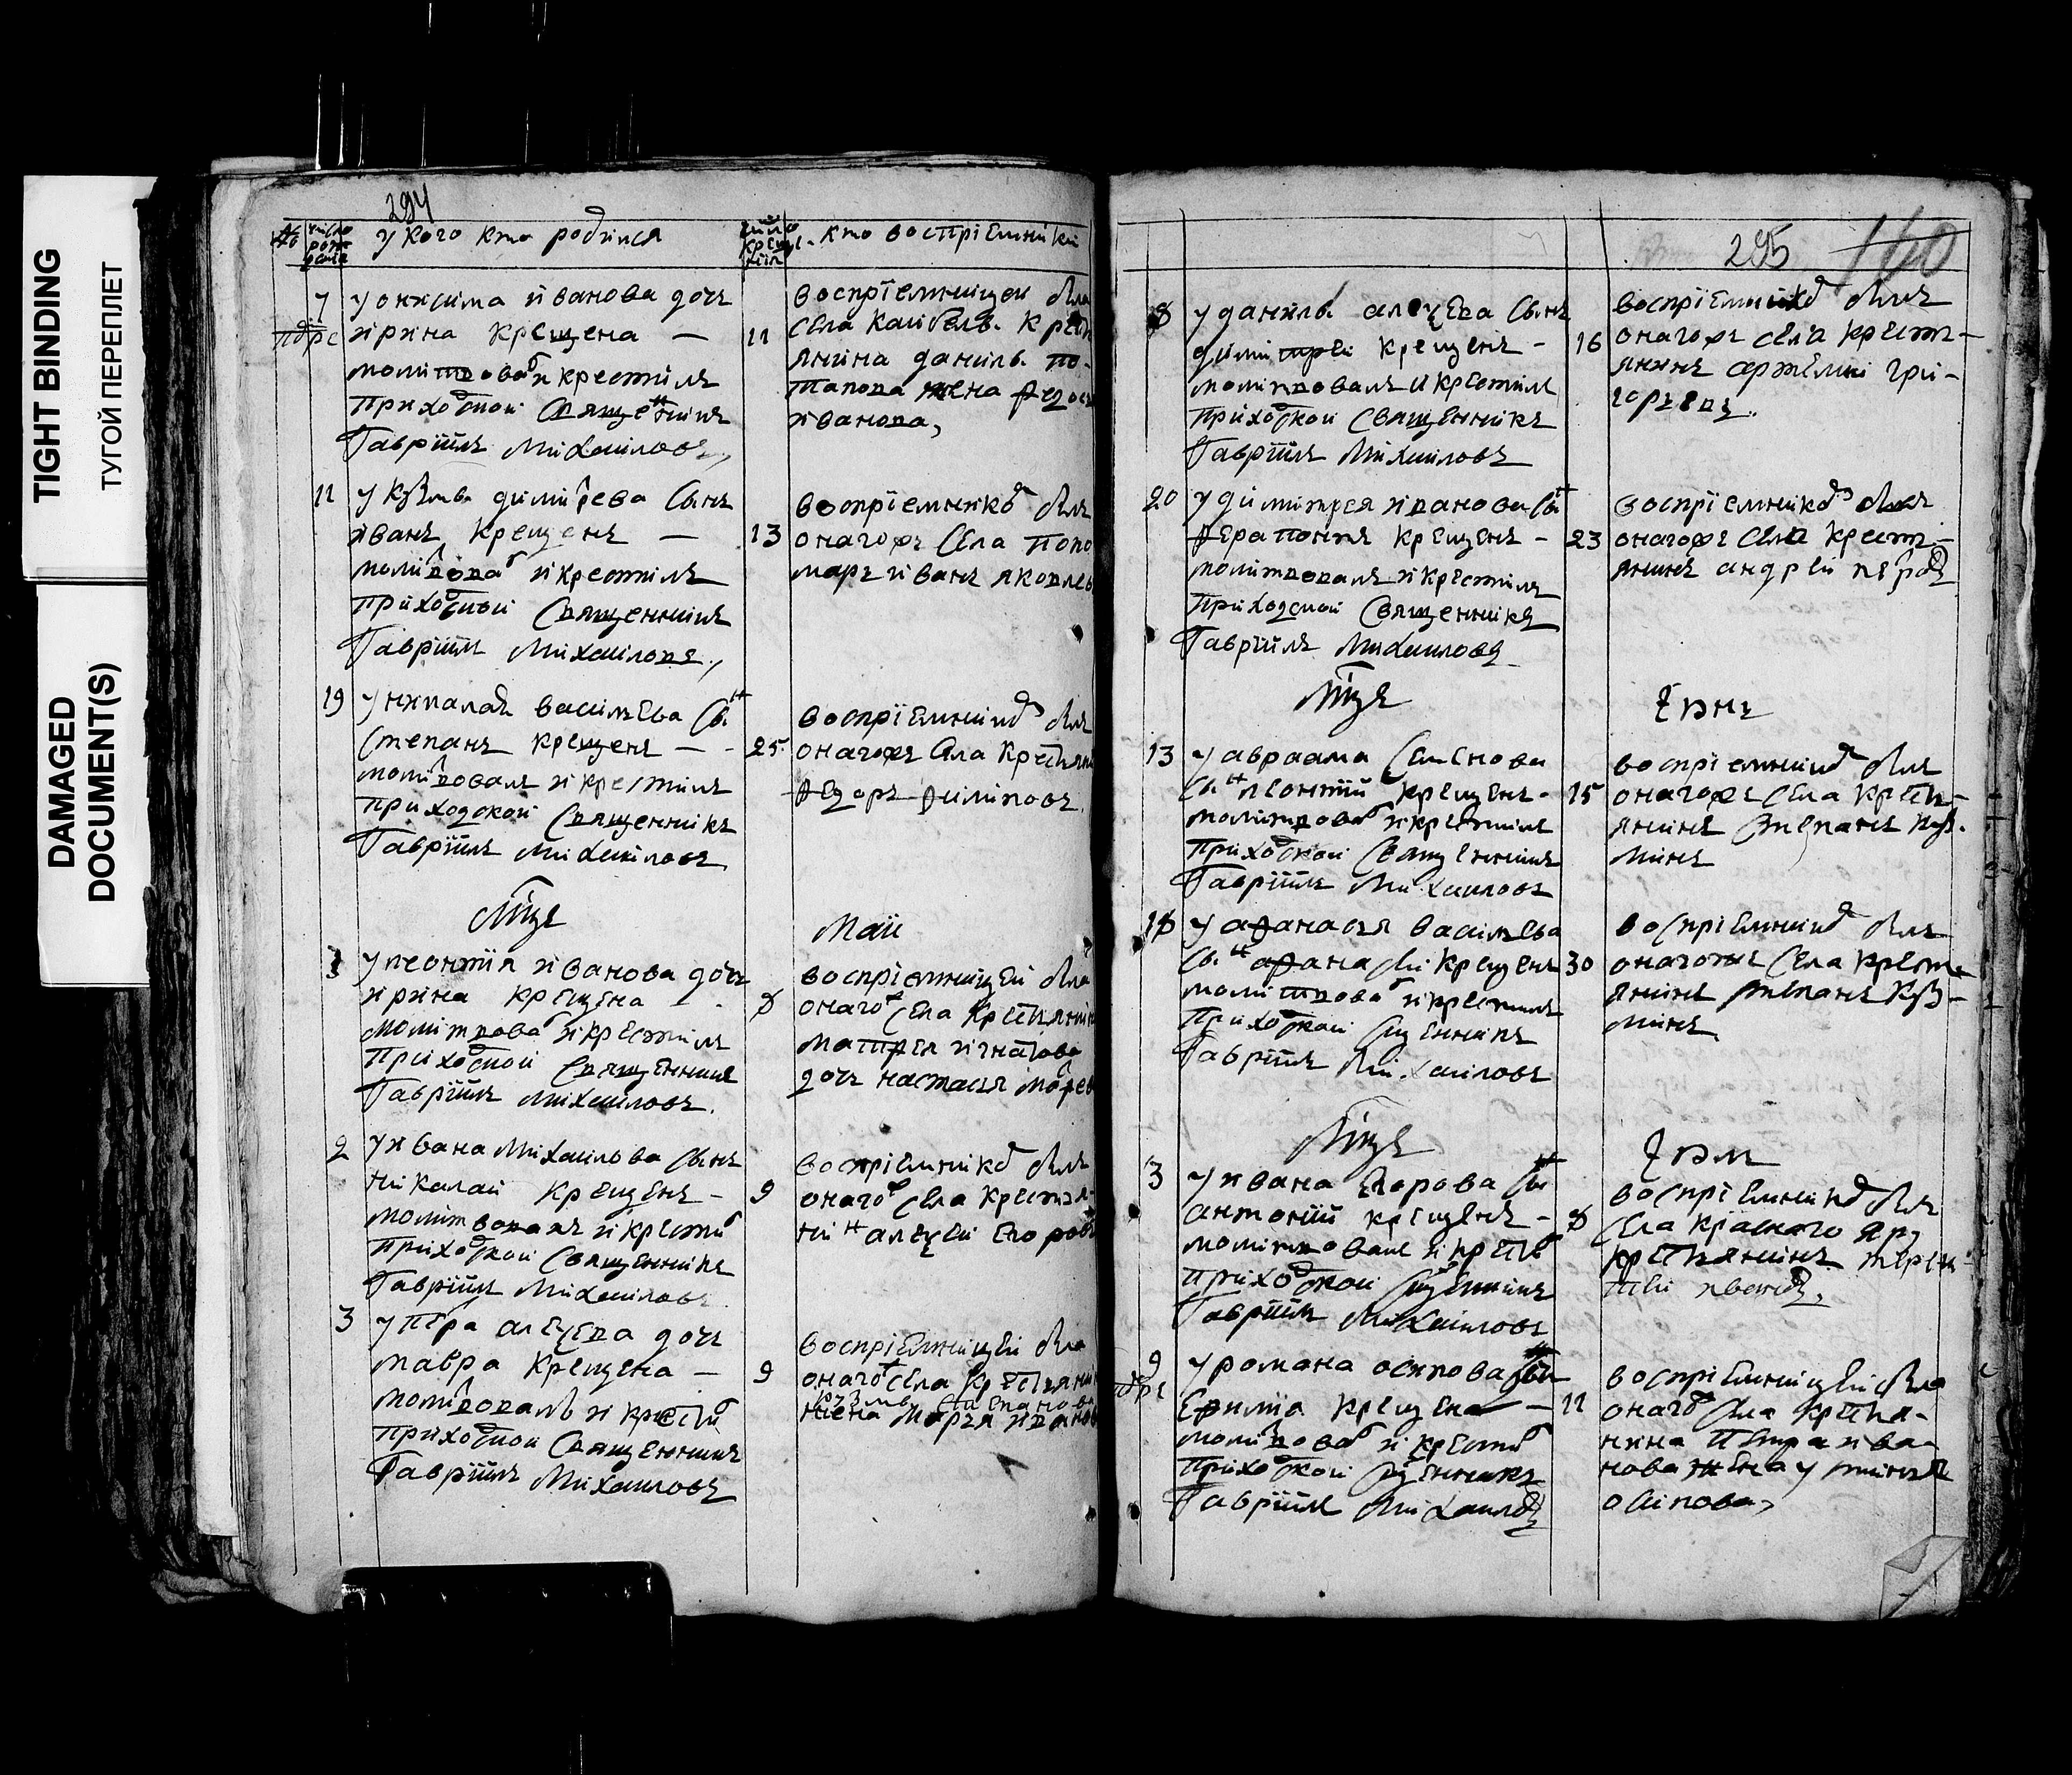 TIGHT BINDING
ТУГОЙ ПЕРЕПЛЕТ
DAMAGED
DOCUMENT(S)
294
№ число рождения
у кого кто родился
число крещения
кто восприемники
7
у онисима иванова дочь
ирина крещена —
молитвовал и крестил
приходской священник
Гавриил Михаилов,
11
восприемницей была
села
крестьянина данила по-
тапова жена федось
иванова,
11
у кузмы димитрева сын
иван крещен —
молитвовал и крестил
приходской священник
Гавриил Михаилов,
13
восприемником был
оногож села поно
марь иван яковлев
19
у василева сын
степан крещен —
молитвовал и крестил
приходской священник
Гавриил Михаилов
25
восприемником был
оногож села крестьянин
федор филипов
Мсцъ
Маий
у леонтия иванова дочь
ирина крещена
молитвовал и крестил
приходской священник
Гавриил Михаилов.
8
восприемницей была
оного села крестьянин
игнатова
дочь настасья
2
у ивана Михаилова сын
николай крещен —
молитвовал и крестил
приходской священник
Гавриил Михаилов
9
восприемником был
оного села крестья-
нин алексей Егоров
3
у петра алексева дочь
мавра крещена —
молитвовал и крестил
приходской священник
Гавриил Михаилов
9
восприемницей была
оного села крестьянина
кузмы степанова
жена Марья иванов
295
160
8
у данилы алексева сын
димитрей крещен —
молитвовал и крестил
приходской священник
Гавриил Михаилов
16
восприемником был
оногож села крест-
янин артемий гри-
горьев.
20
у димитрея иванова сын
ферапонт крещен —
молитвовал и крестил
приходской священник
Гавриил Михаилов
23
восприемником был
оногож села крест-
янин андрей петров
Мсцъ
Iюнь
13
у авраама семенова
сын леонтий крещен —
молитвовал и крестил
приходской священник
Гавриил Михаилов
15
восприемником был
оногож села крестъ-
янин степан куз-
мин
18
у афанасья василева
сын афанасий крещен
молитвовал и крестил
приходской священник
Гавриил Михаилов
30
восприемником был
оногож села кресть-
янин степан куз-
мин
Мсцъ
Iюль
3
у ивана Егорова сын
антоний крещен —
молитвовал и крестил
приходской священник
Гавриил Михаилов
8
восприемником был
села красного яру
крестьянин терен-
тей иванов,
9
у романа осипова
крещена —
молитвовал и крестил
приходской священник
Гавриил Михаилов
11
восприемницей была
оного села крестья-
нина петра ива-
нова жена устинья
осипова,